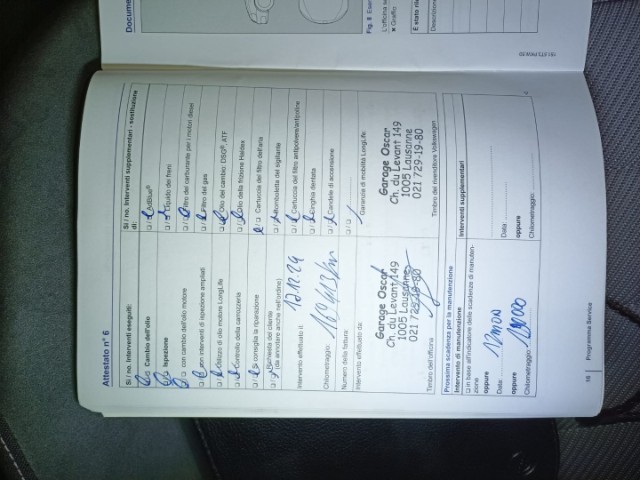 Attestato n° 6
Si / no. Interventi eseguiti:
Cambio dell'olio
Ispezione
con cambio dell'olio motore
con interventi di ispezione ampliati
Utilizzo di olio motore LongLife
Controllo della carrozzeria
si consiglia la riparazione
Richiesta del cliente
(da annotare anche nell'ordine)
Intervento effettuato il:
17.12.24
Chilometraggio:
Numero della fattura:
Intervento effettuato da:
Garage Oscar
Ch. du Levant 149
1005 Lausanne
021 729-19-80
Timbro dell'officina
Si / no. Interventi supplementari - sostituzione
di:
AdBlue®
Liquido dei freni
Filtro del carburante per i motori diesel
Filtro del gas
Olio del cambio DSG®, ATF
Olio della frizione Haldex
Cartuccia del filtro dell'aria
Bomboletta del sigillante
Cartuccia del filtro antipolvere/antipolline
Cinghia dentata
Candele di accensione
Garanzia di mobilità LongLife:
Garage Oscar
Ch. du Levant 149
1005 Lausanne
021 729-19-80
Timbro del rivenditore Volkswagen
Prossima scadenza per la manutenzione
Intervento di manutenzione
in base all'indicatore delle scadenze di manuten-
zione
oppure
Data:
12 mois
oppure
Chilometraggio:
Interventi supplementari
Data:
oppure
Chilometraggio:
18 Programma Service
Fig. 5